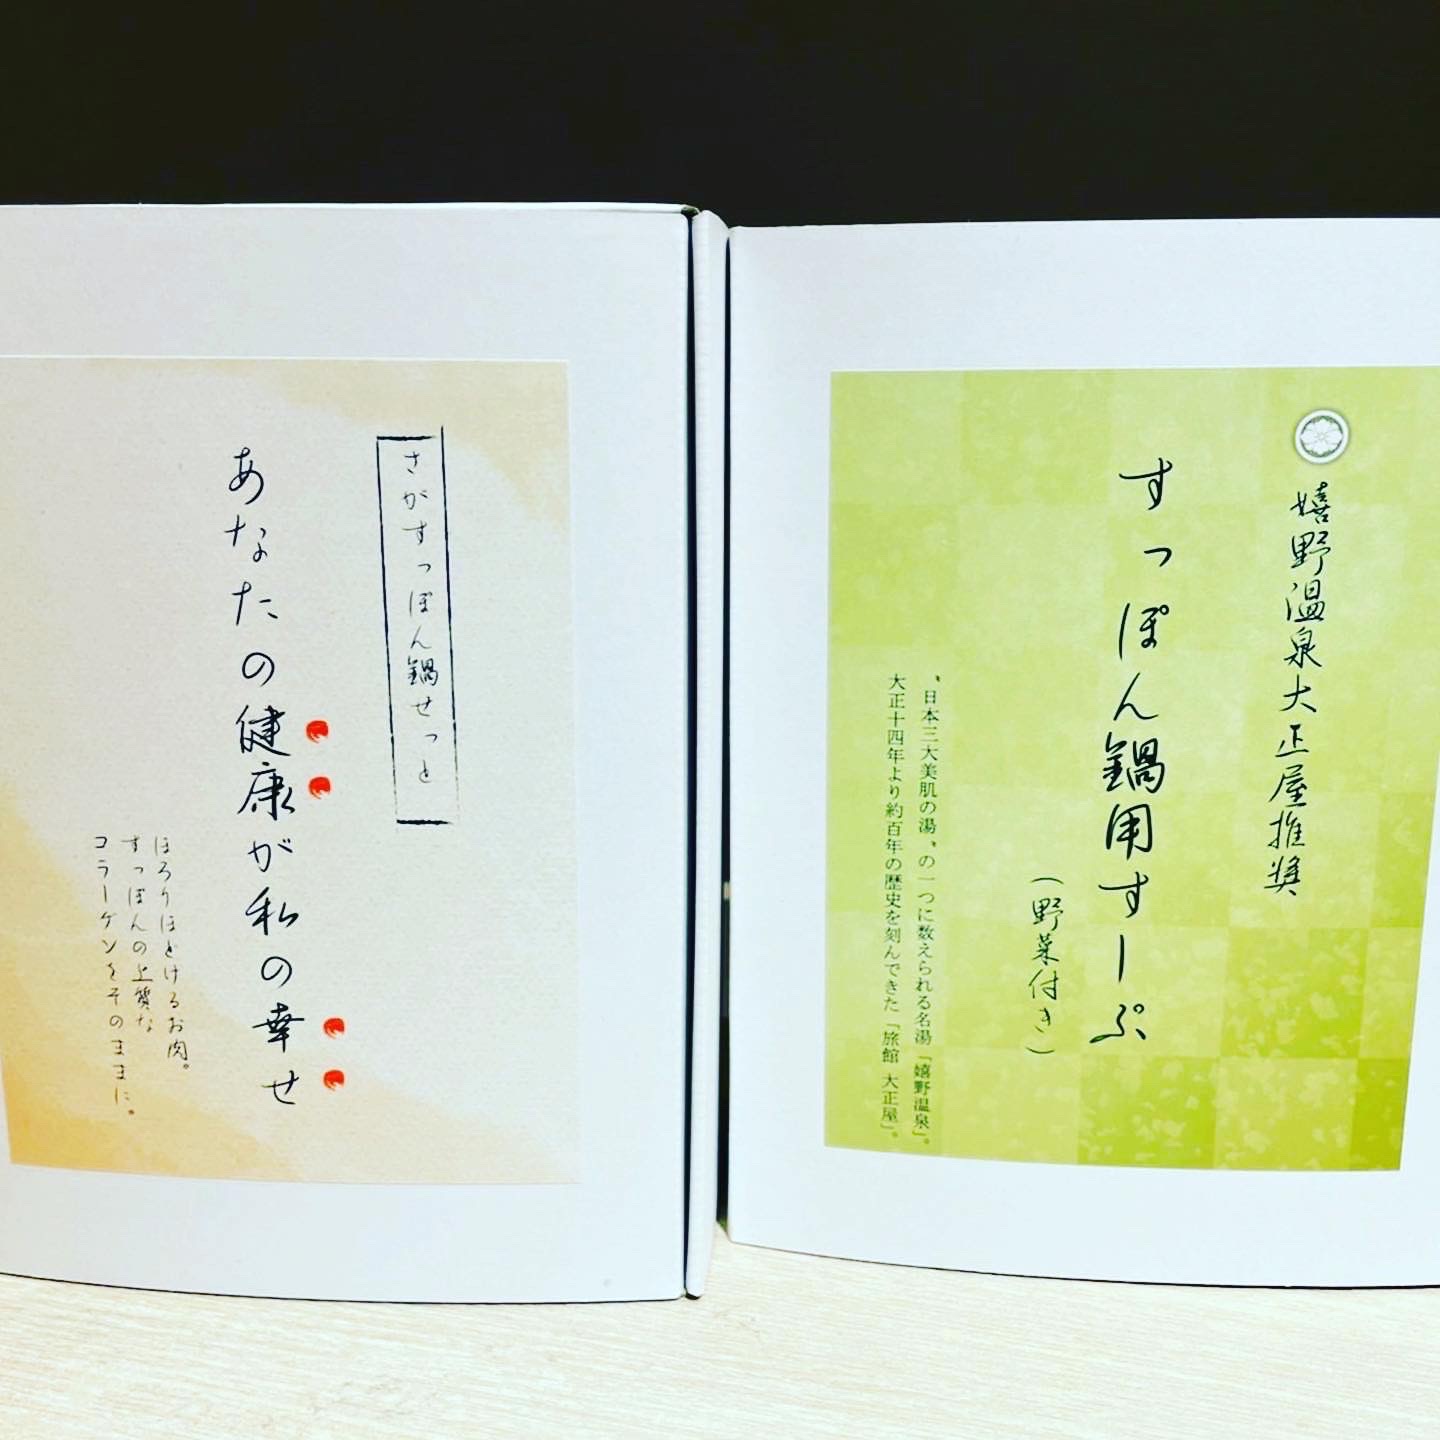 さがすっぽん鍋せっと
あなたの健康が私の幸せ
ほろりほどけるお肉。
すっぽんの上質な
コラーゲンをそのままに。
嬉野温泉大正屋推奨
すっぽん鍋用すーぷ
(野菜付き)
〝日本三大美肌の湯〟の一つに数えられる名湯「嬉野温泉」。
大正十四年より約百年の歴史を刻んできた「旅館 大正屋」。